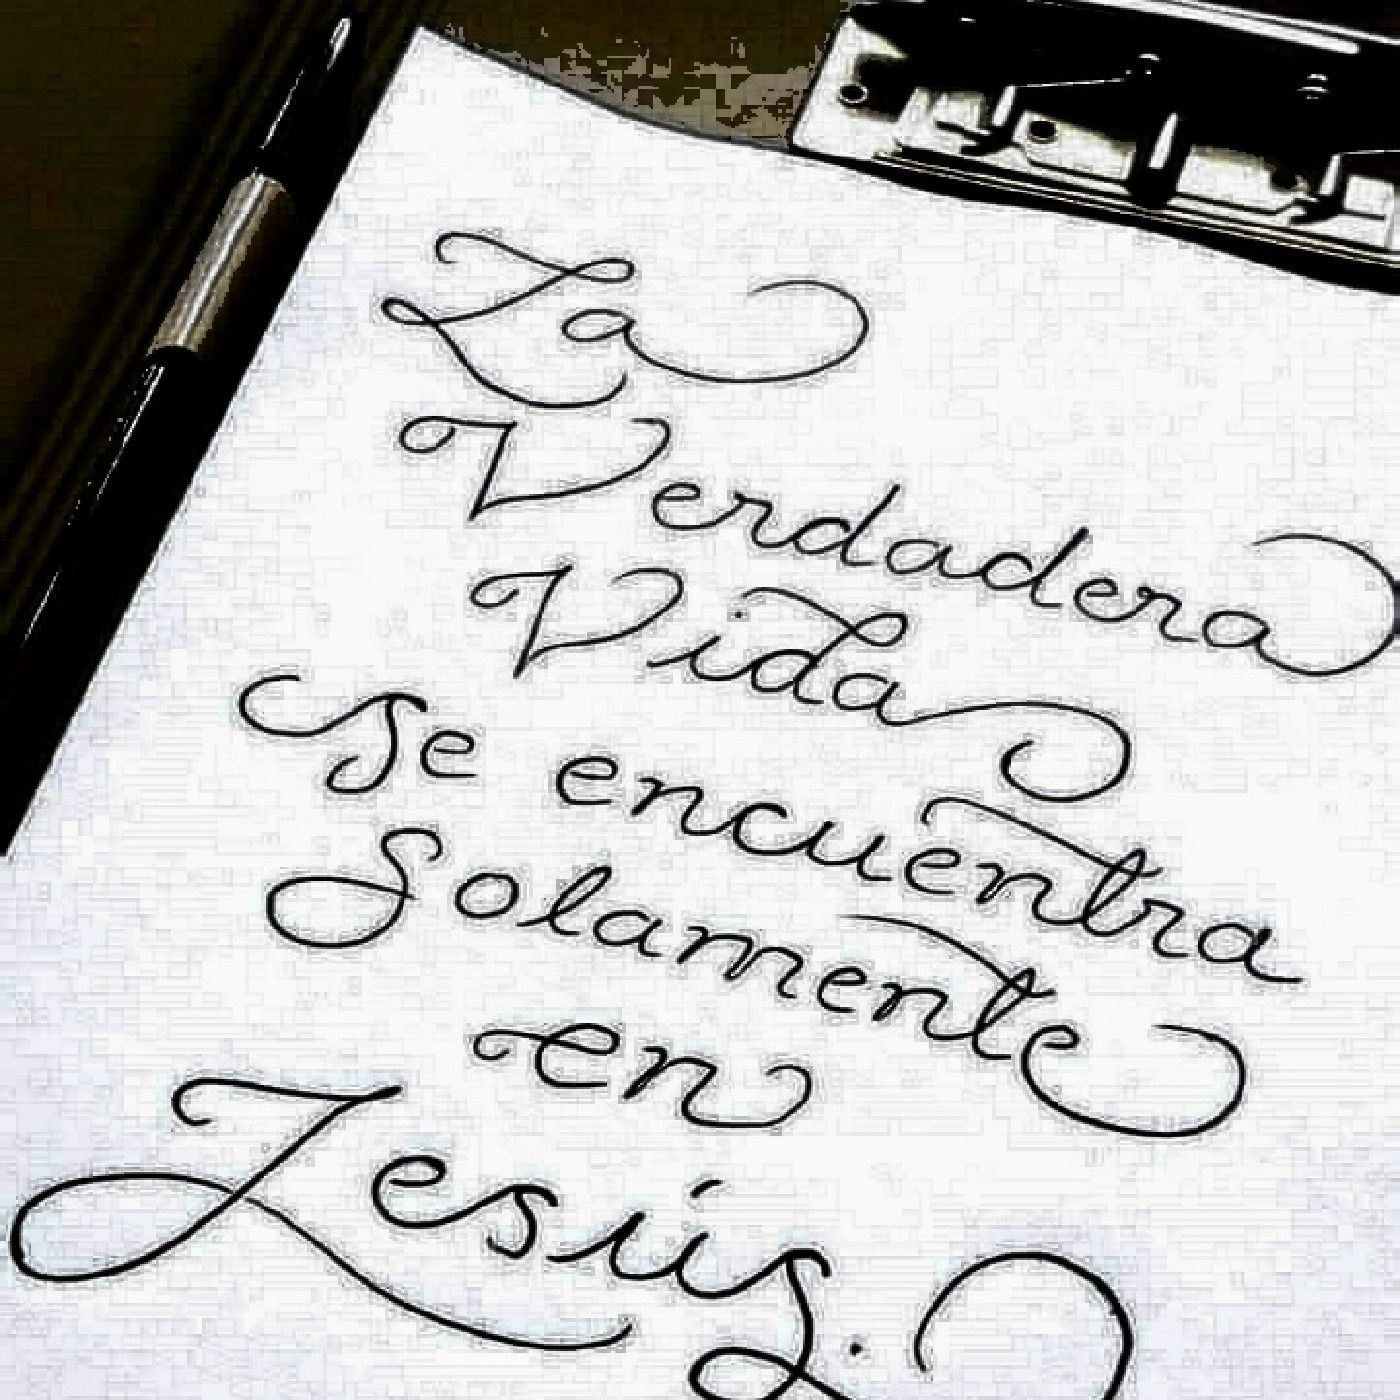 La
Verdadera
Vida
se encuentra
Solamente
en
Jesús.